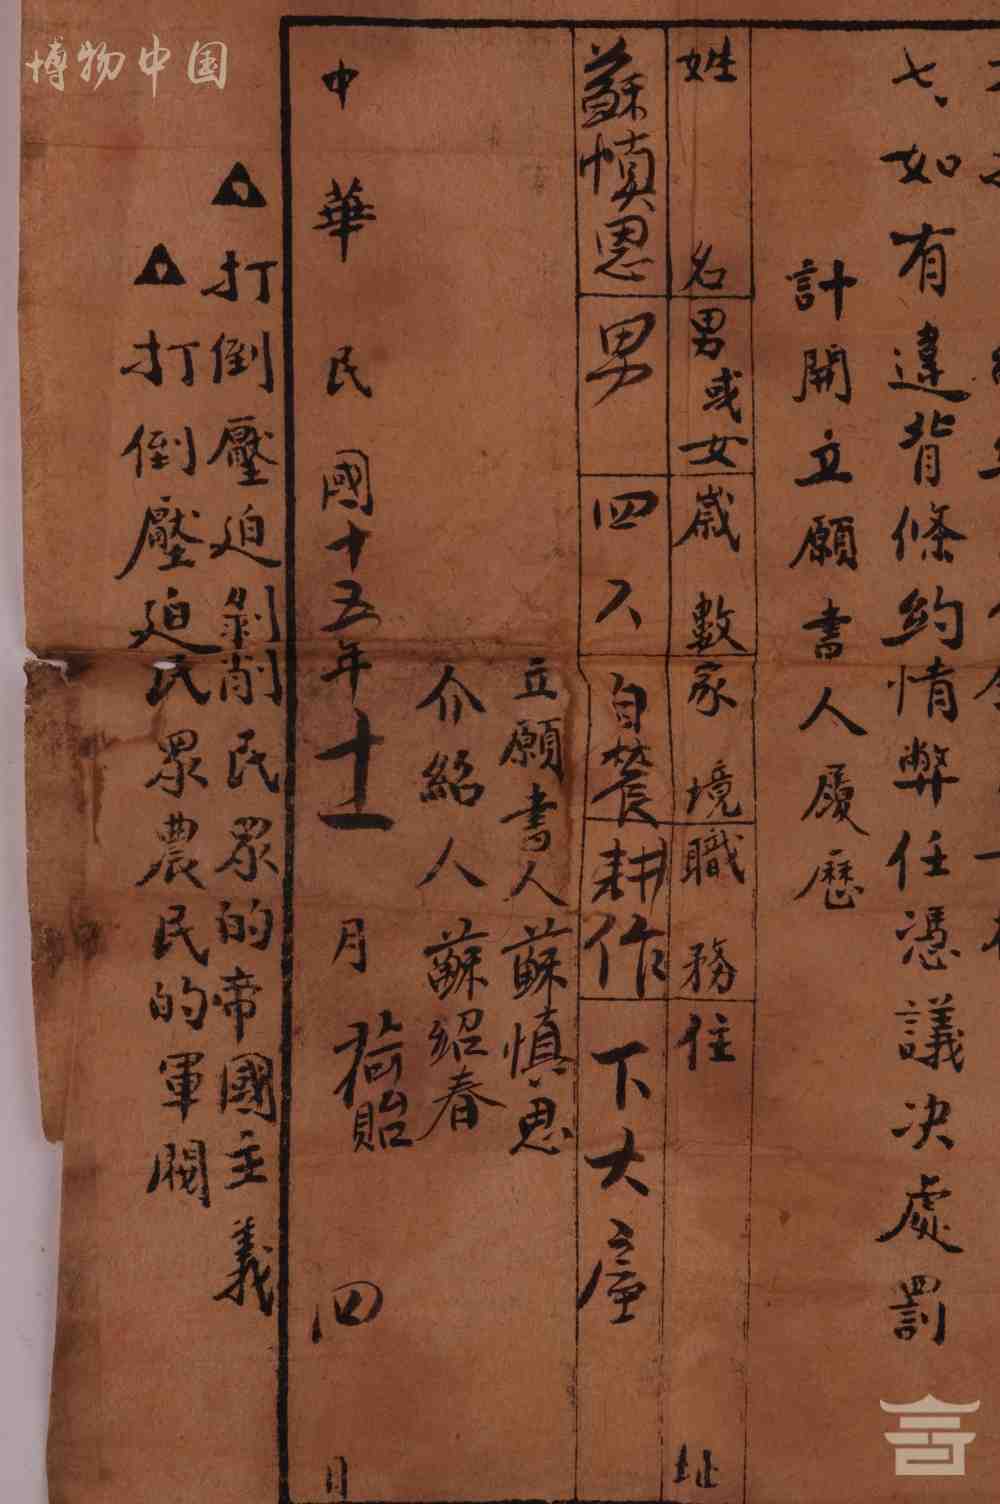 七、如有違背條約情弊任憑議决處罰
計開立願書人履歷
姓名 男或女 歲數 家境 職務 住址
蘇慎恩 男 四 自農 耕作 下大
立願書人 蘇慎恩
介紹人 蘇紹春
中華民國十五年十一月 四日
▲打倒壓迫剝削民眾的帝國主義
▲打倒壓迫民眾農民的軍閥
博物中国